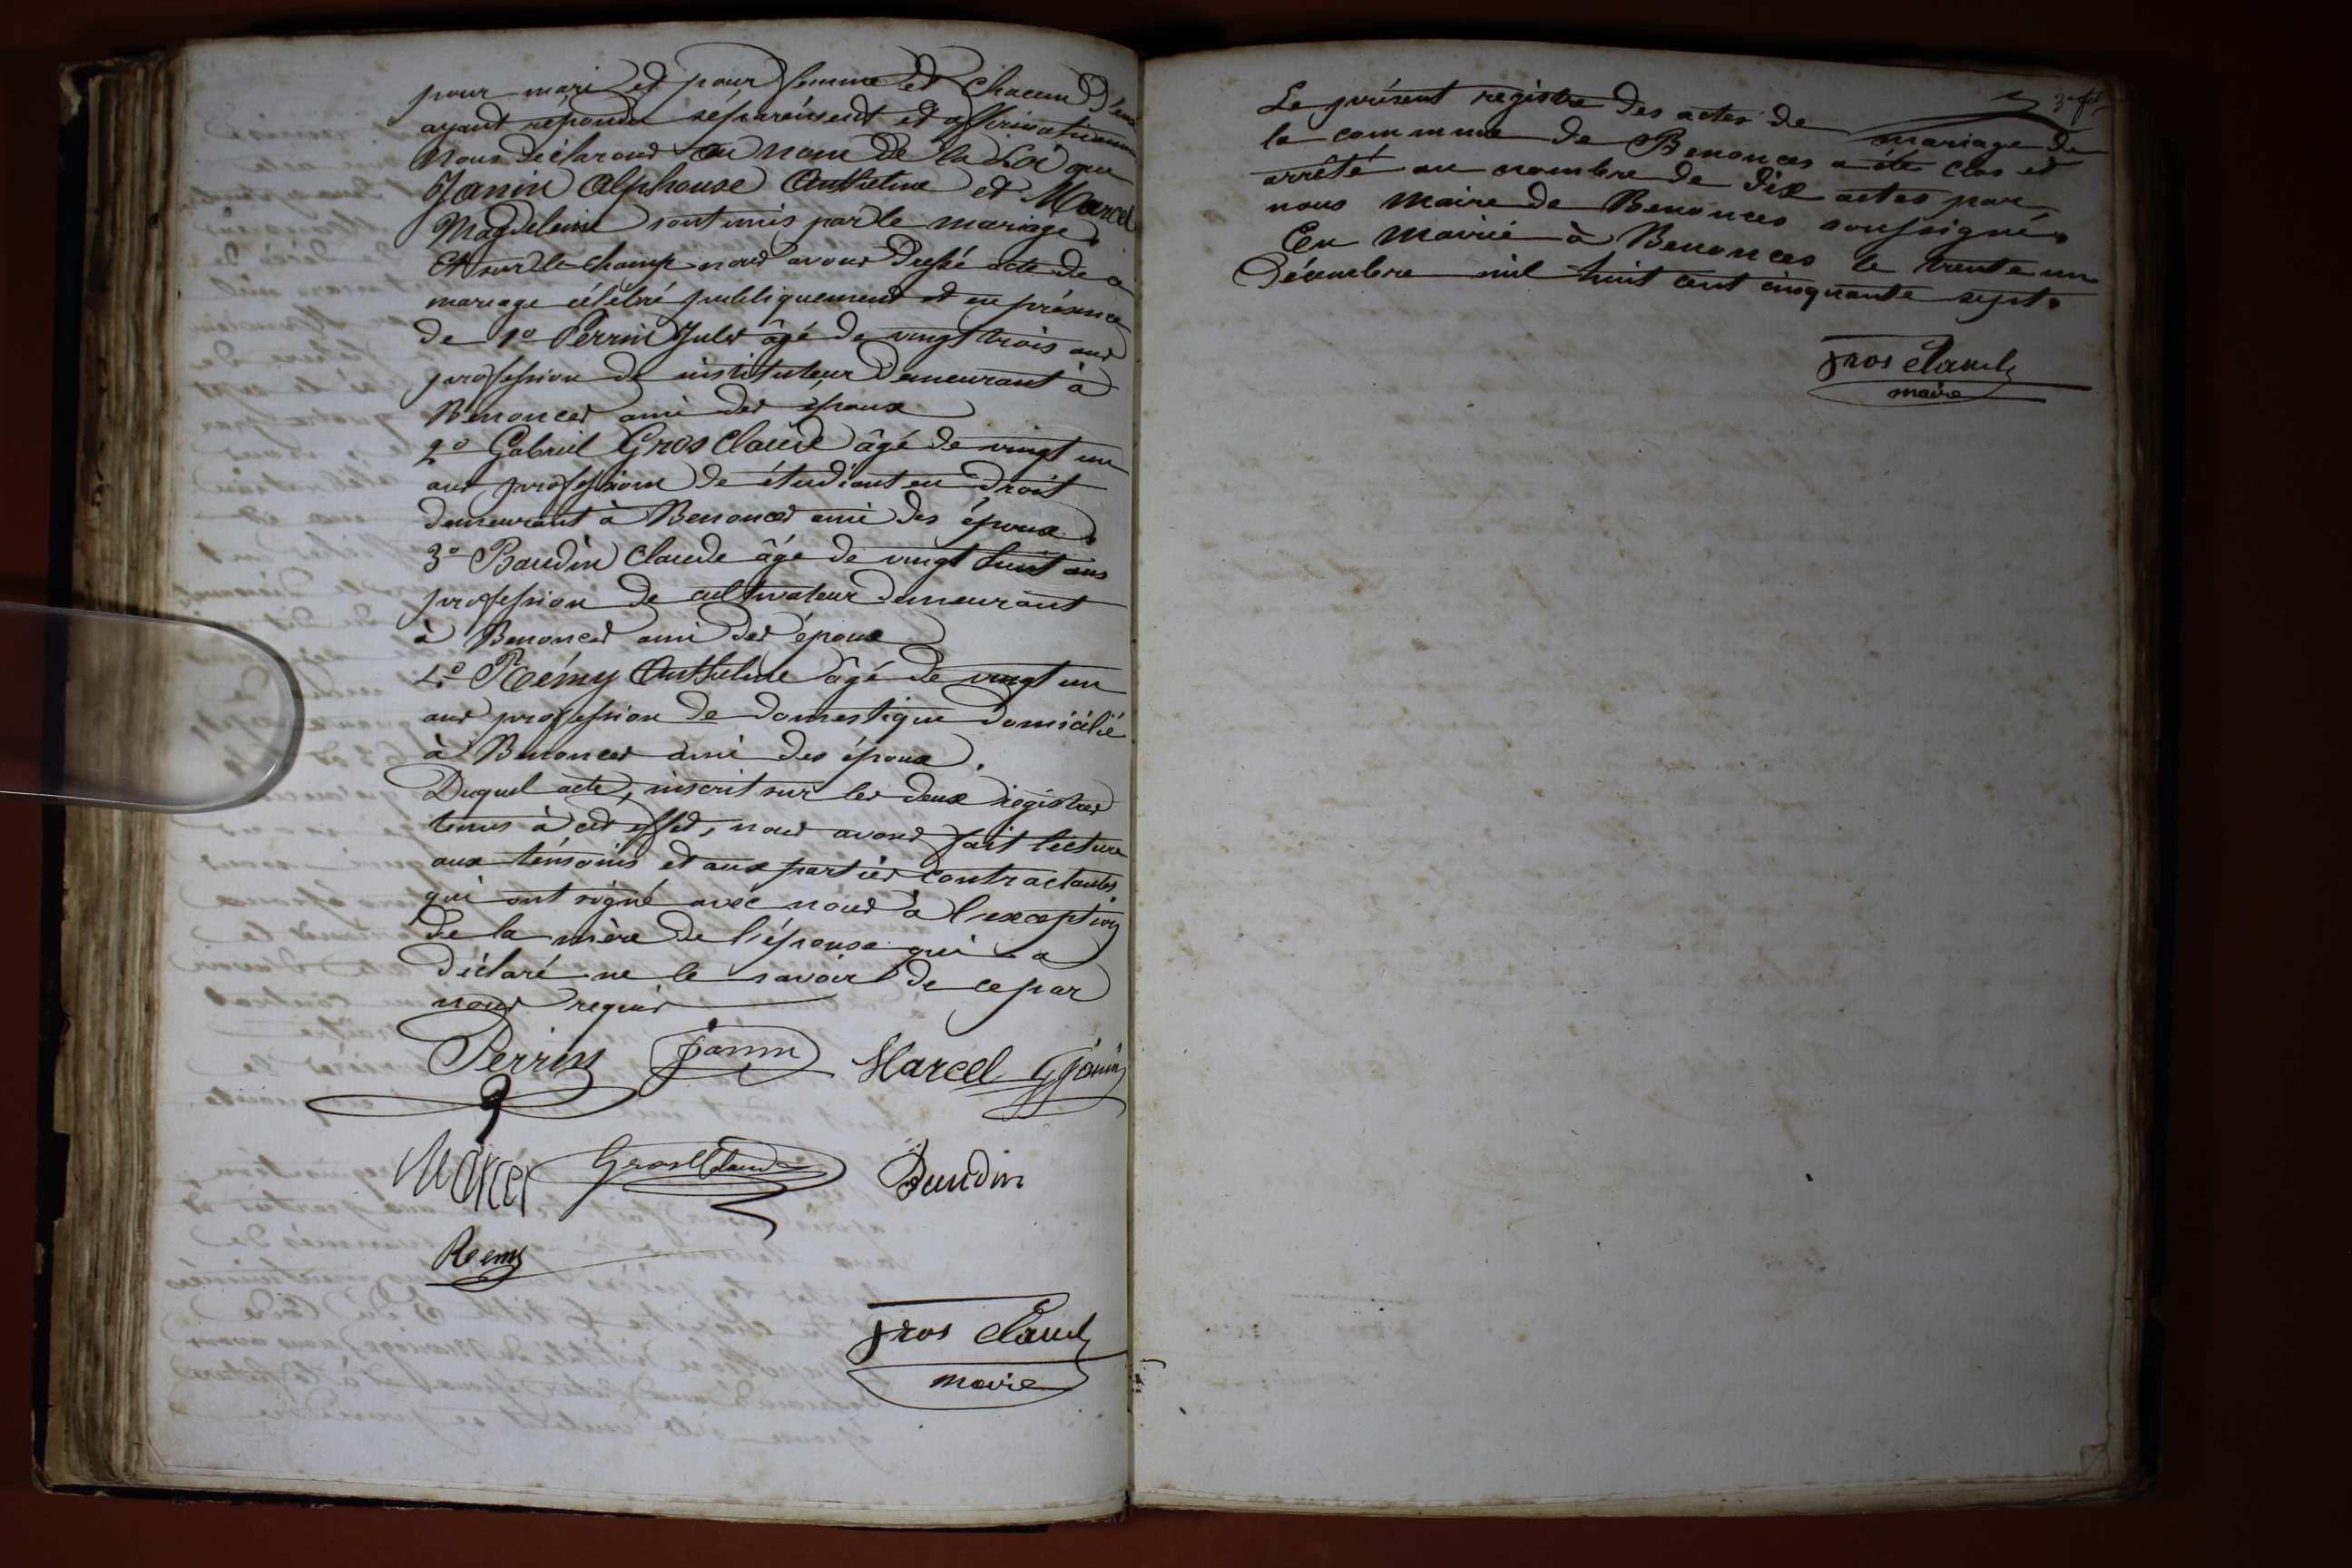 pour mari et pour femme et chacun d'eux
ayant répondu séparément et affirmativement
Nous déclarons au nom de la Loi que
Janin Alphonse Anthelme et Marcel
Magdeleine sont unis par le mariage.
Et sur le champ nous avons dressé acte de ce
mariage célébré publiquement et en présence
de 1o Perrin Jules âgé de vingt trois ans
profession de instituteur demeurant à
Benonces ami des époux
2o Gabriel Gros Claude âgé de vingt un
ans profession de étudiant en droit
demeurant à Benonces ami des époux.
3o Baudin Claude âgé de vingt huit ans
profession de cultivateur demeurant
à Benonces ami des époux
4o Rémy Anthelme âgé de vingt un
ans profession de domestique domicilié
à Benonces ami des époux.
Duquel acte, inscrit sur les deux registres
tenus à cet effet, nous avons fait lecture
aux témoins et aux parties contractantes
qui ont signé avec nous à l'exception
de la mère de l'épouse qui a
déclaré ne le savoir de ce par
nous requis
Perrin Janin Marcel Janin
Marcel GrosClaude Baudin
Remy
gros Claude
maire
3e fet
Le présent registre des actes de mariage de
la commune de Benonces a été clos et
arrêté au nombre de dix actes par
nous Maire de Benonces soussigné.
En Mairie à Benonces le trente un
Décembre mil huit cent cinquante sept.
gros Claude
maire